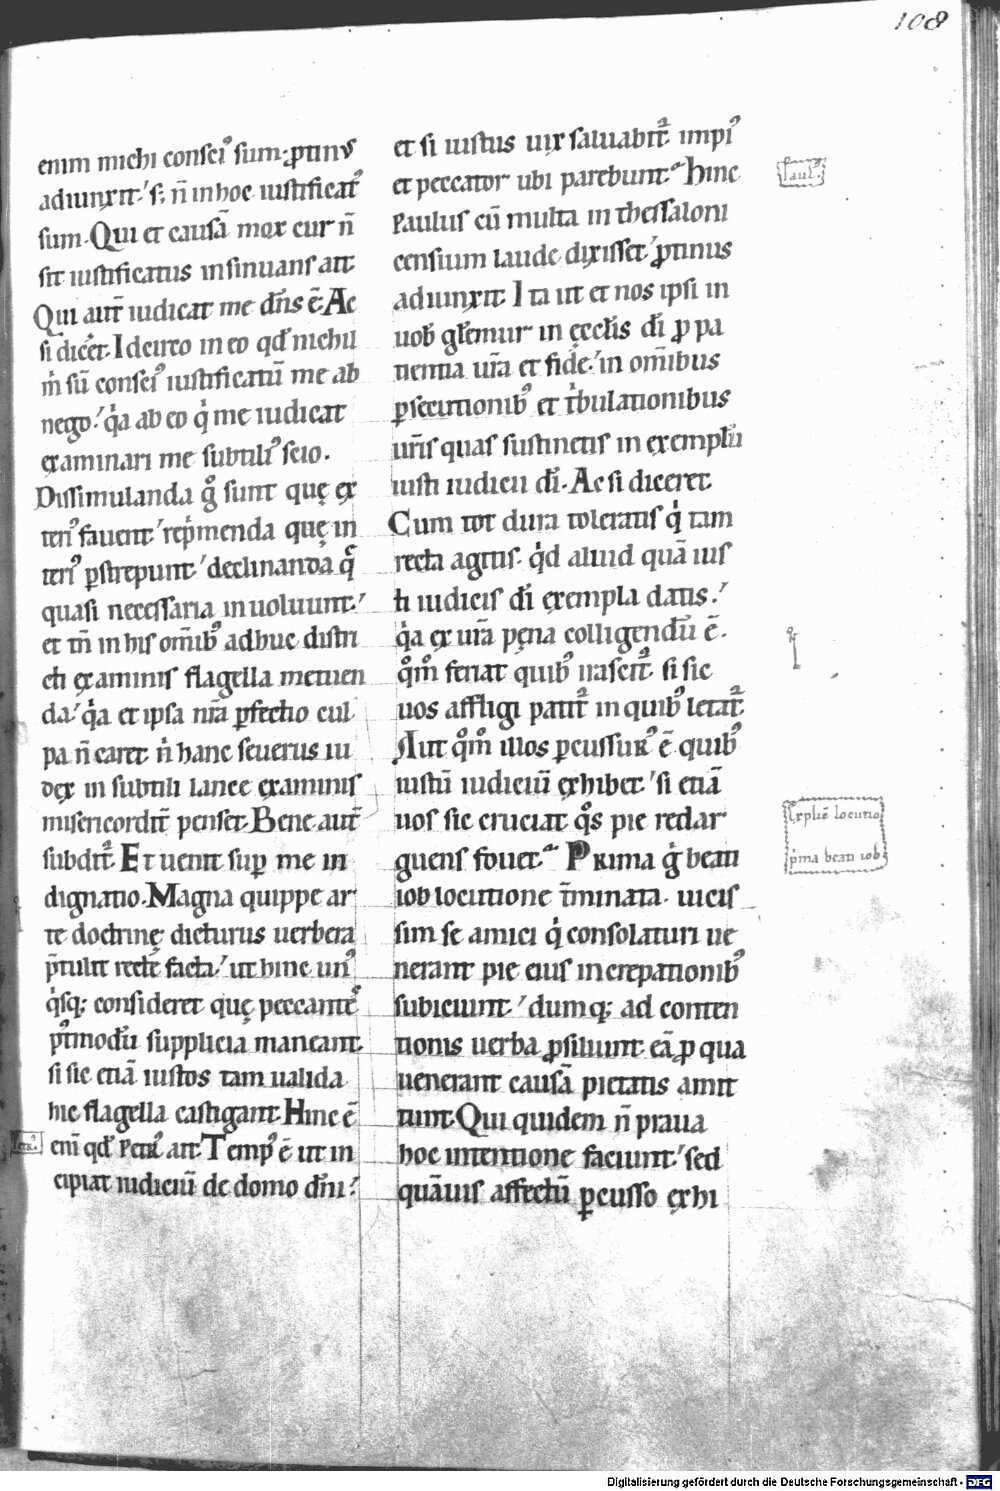 108
enim michi consciꝰ sum; ꝓtinꝰ
adiunxit; s; n̄ in hoc iustificatꝰ
sum. Qui et causā mox cur n̄
sit iustificatus insinuans ait.
Qui aut̄ iudicat me dn̄s ē. Ac
si diceret. Idcirco in eo qd̓ nichil
m̍ sū consciꝰ iustificatū me ab
nego; q̍a ab eo q̍ me iudicat
examinari me subtiliꝰ scio.
Dissimulanda g̊ sunt quę ex
teriꝰ fauent; rep̍menda quę in
teriꝰ ꝑstrepunt; declinanda q̨
quasi necessaria inuoluunt;
et tn̄ in his om̄ibꝰ adhuc distri
cti examinis flagella metuen
da; q̍a et ipsa nr̄a ꝑfectio cul
pa n̄ caret n̍ hanc seuerus iu
dex in subtili lance examinis
misericordit̄ penset. Bene aut̄
subdit᷑. Et uenit suꝑ me in
dignatio. Magna quippe ar
te doctrinę dicturus uerbera
p̄tulit recte facta; ut hinc unꝰ
q̍sq; consideret quę peccantē
pꝰtmodū supplicia maneant.
si sic etiā iustos tam ualida
hic flagella castigant. Hinc ē
eni̅ qd̓ Petrꝰ ait. Tempꝰ ē ut in
cipiat iudiciū de domo dn̄i;
et si iustus uix saluabit᷑. impiꝰ
et peccator ubi parebunt. Hinc
Paulus cū multa in thessaloni
censium laude dixisset; ꝓtinus
adiunxit. Ita ut et nos ipsi in
uob̓ gl̓emur in ęccl̓is dī ꝓ pa
tientia ur̄a et fide; in om̄ibus
ꝑsecutionibꝰ et t̍bulationibus
ur̄is quas sustinetis in exemplū
iusti iudicii dī. Ac si diceret.
Cum tot dura toleratis q̍ tam
recta agitis. q̍d aliud quā ius
ti iudicis dī exempla datis;
q̍a ex ur̄a pęna colligendū ē.
qꝰm̊ feriat quibꝰ irascit᷑. si sic
uos affligi patit᷑ in quibꝰ letat᷑.
Aut qꝰm̊ illos ꝑcussurꝰ ē quibꝰ
iustū iudiciū exhibet; si etiā
uos sic cruciat qꝰs pie redar
guens fouet. Prima g̍ beati
iob locutione t̄minata. uicis
sim se amici q̍ consolaturi ue
nerant pie eius increpationibꝰ
subiciunt; dumq; ad conten
tionis uerba ꝓsiliunt. eā ꝓ qua
uenerant causā pietatis amit
tunt. Qui quidem n̄ praua
hoc intentione faciunt; sed
quāuis affectū ꝑcusso exhi
Paulꝰ
Explic̄ locutio
p̍ma beati iob
Digitalisierung gefördert durch die Deutsche Forschungsgemeinschaft - DFG